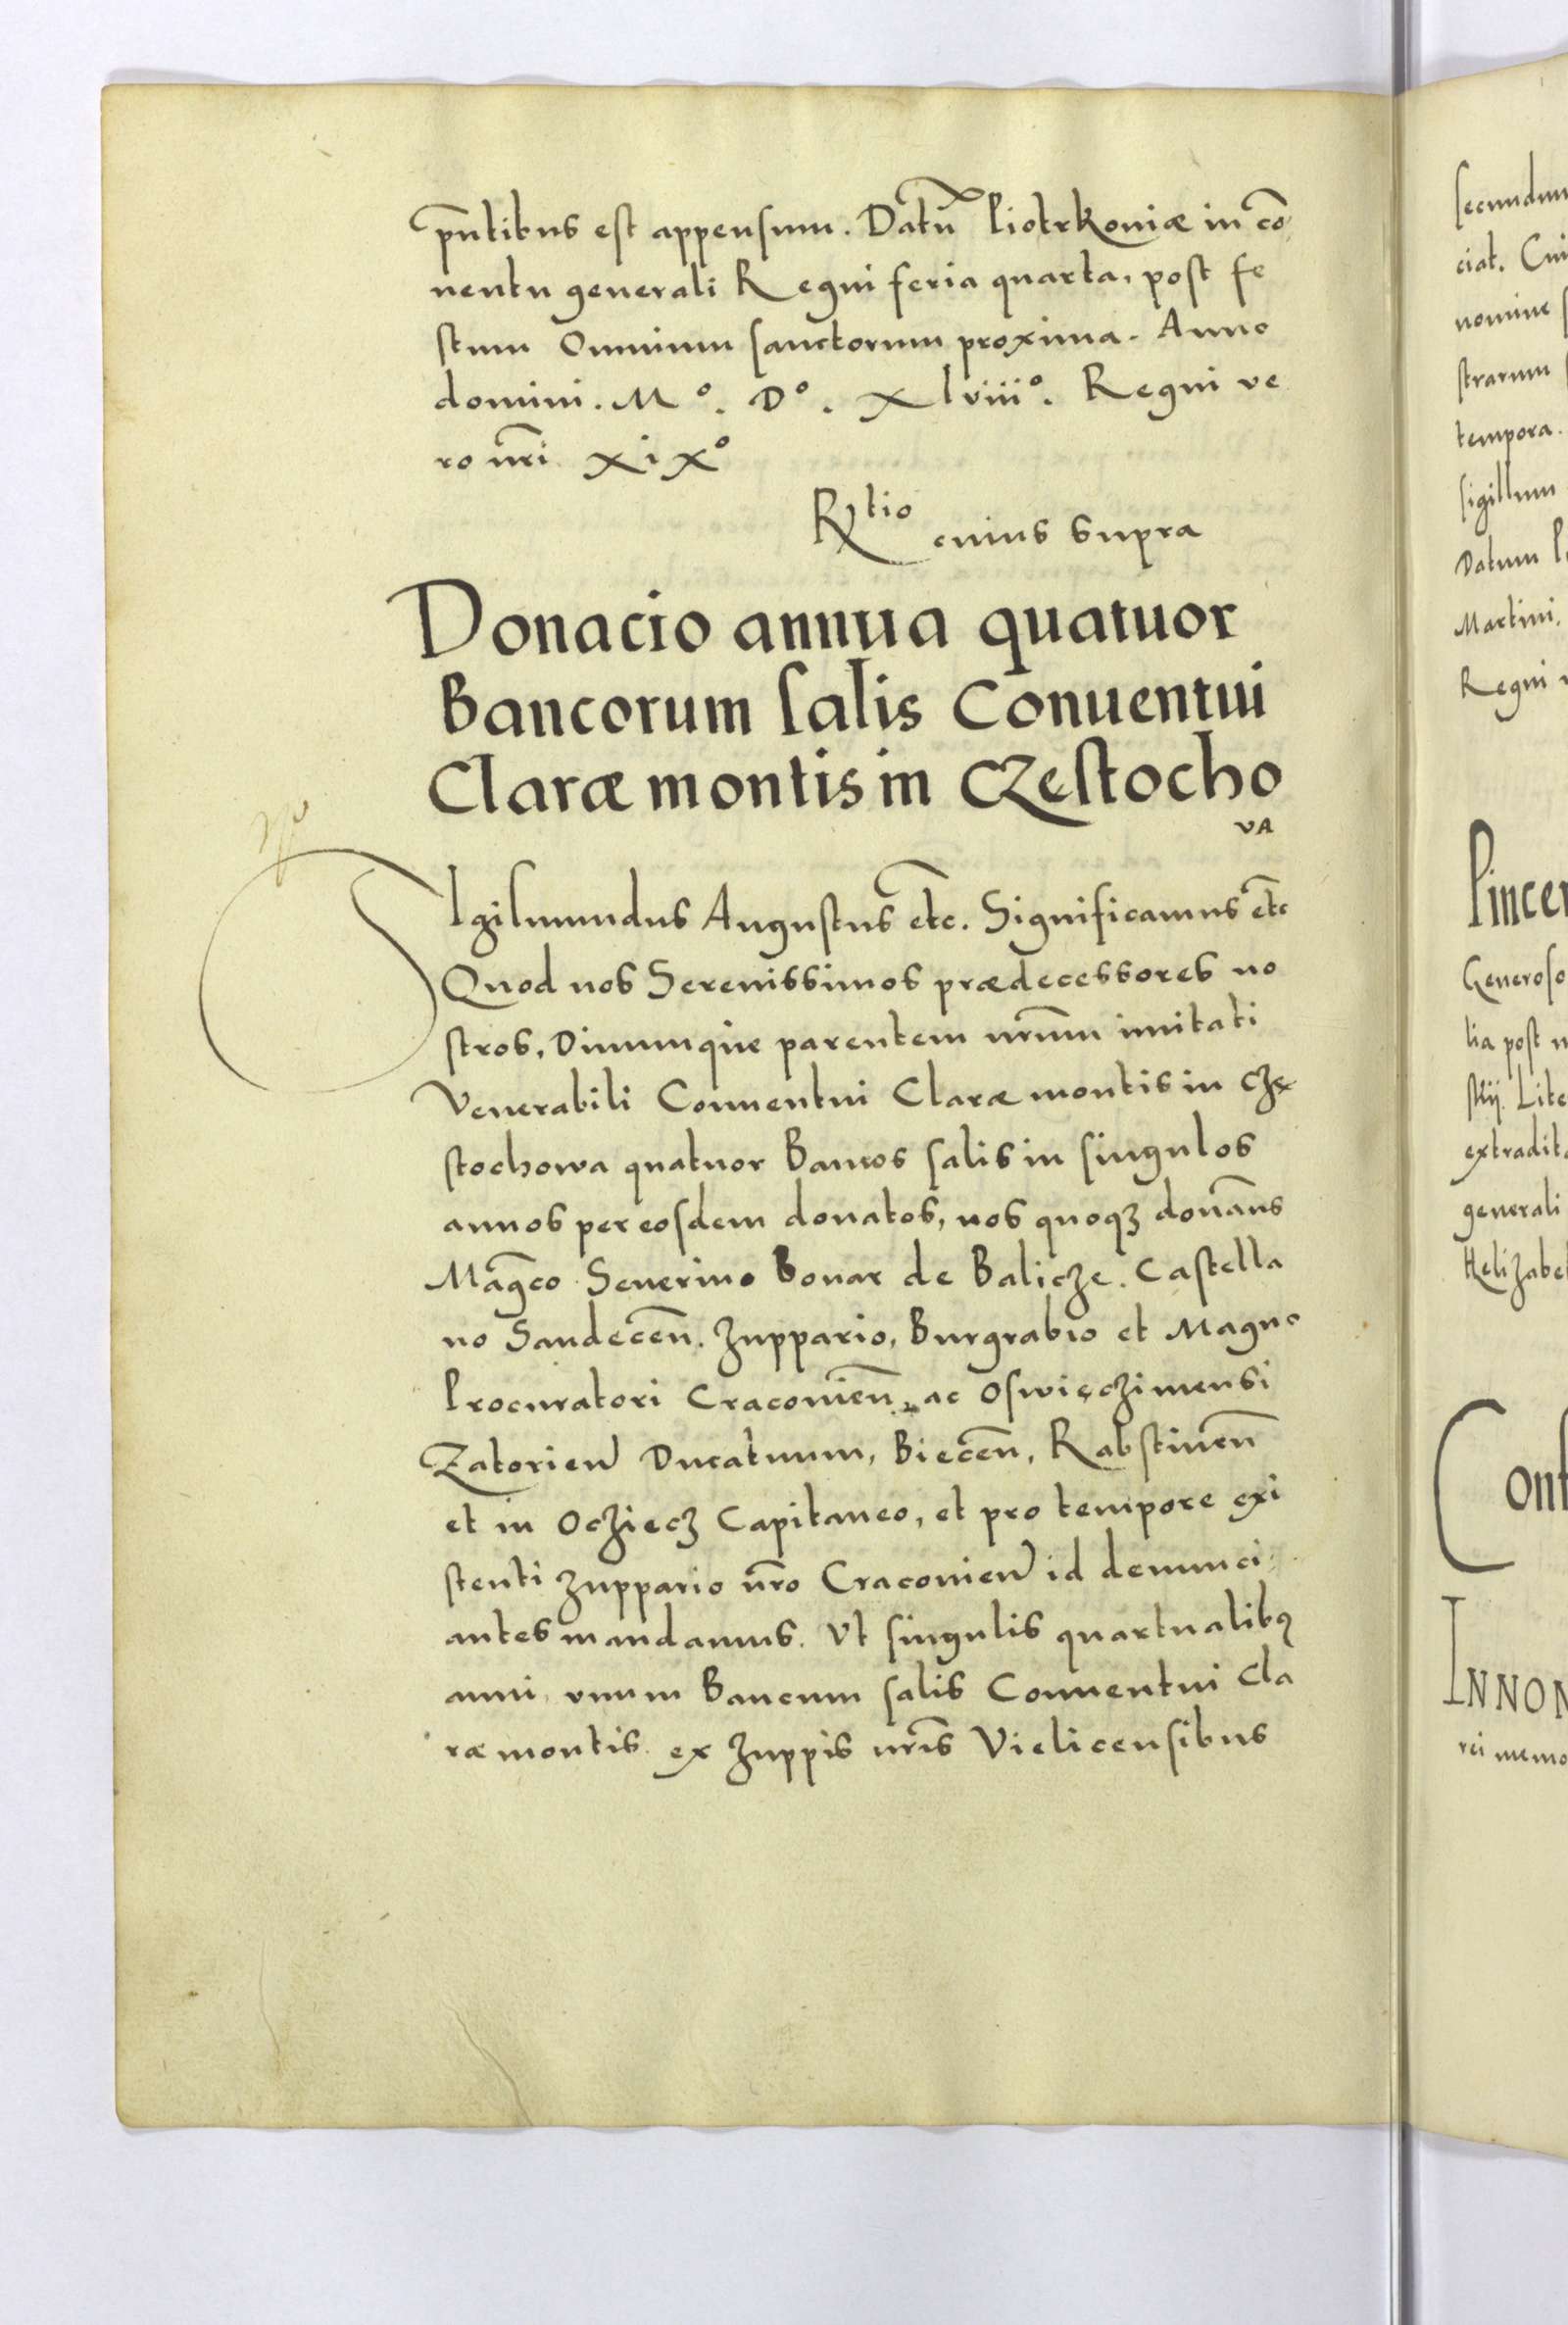 pñtibus est appensum. Datũ Piotrkoniæ in cõ
uentu generali Regni feria quarta, post fe
stum Omnium sanctorum proxima. Anno
domini. Mº. Dº. Xlviiiº. Regni ve
ro nr̃i XiXº
Rtio cuius supra
Donacio annua quatuor
Bancorum salis Conuentui
Claræ montis in Czestocho
va
Sigismundus Augustus etc. Significamus etc
Quod nos Serenissimos prædecessores no
stros, Diuumque parentem nr̃um imitati
Venerabili Conuentui Claræ montis in Czę
stochowa quatuor Bancos salis in singulos
annos per eosdem donatos, nos quoqȝ donãns
Magc̃o Seuerino Bonar de Balicze. Castella
no Sandecen̄. Zuppario, Burgrabio et Magno
Procuratori Cracovien̄, ac Oswięczimensi
Zatorien̄ Ducatuum, Biecen̄, Rabstinen̄
et in Ocziecz Capitaneo, et pro tempore exi
stenti zuppario nr̃o Cracovien̄ id denunci
antes mandamus. Ut singulis quartualibꝰ
anni, vnum Bancum salis Conuentui Cla
ræ montis ex zuppis nr̃is Vielicensibus
secundum
ciat. Cui
nomine
strarum
tempora.
sigillum
Datum
Martini,
Regni
Pincer
Generoso
lia post
skij. Lite
extradita
generali
Helizabe
Conf
INNOM
rei memo